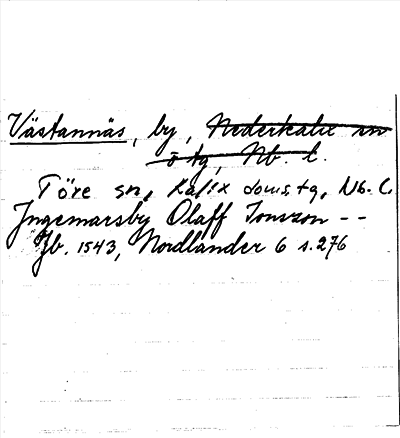 Västannäs, by, Nederkalix sn
ö tg, Nb. l.
Töre sn, Kalix doms.tg, Nb. l.
Ingemarsby Olaff Jonsson --
Jb. 1543, Nordlander 6 s. 276